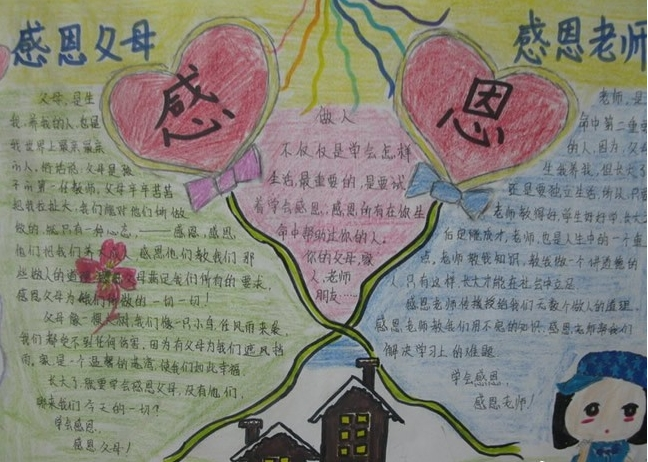 感恩父母
感
父母,是生
我、养我的人,也是
我世界上最亲最亲
的人,俗话说:父母是孩
子的第一任教师,父母辛辛苦苦
把我在拉大,我们能对他们所做
做的,就只有一种心态,——感恩,感恩
他们把我们养大成人,感恩他们教我们那
些做人的道理,父母满足我们所有的要求,
感恩父母为我们所做的一切一切!
父母像一棵大树,我们像一只小鸟,任风雨来袭,
我们都受不到任何伤害,因为有父母为我们遮风挡
雨,家是一个温馨的港湾,使我们如此幸福
长大了,就要学会感恩父母,没有他们,
哪来我们今天的一切?
学会感恩,
感恩父母!
做人
不仅仅是学会怎样
生活,最重要的,是要试
着学会感恩,感恩所有在你生
命中帮助过你的人:
你的父母,家
人,老师
朋友……
感恩老师
恩
老师,是
命中第二重要
的人,因为,父母
生我养我,但长大了
还是要独立生活,所以,只有
老师教得好,学生听好学,长大了
后定能成才,老师,也是人生中的一个重
点,老师教我知识,教我做一个讲道德的
人,只有这样,长大才能在社会中立足
感恩老师传授授给我们无数个做人的道理,
感恩老师教我们用不完的知识,感恩老师帮我们
解决学习上的难题
学会感恩,
感恩老师!